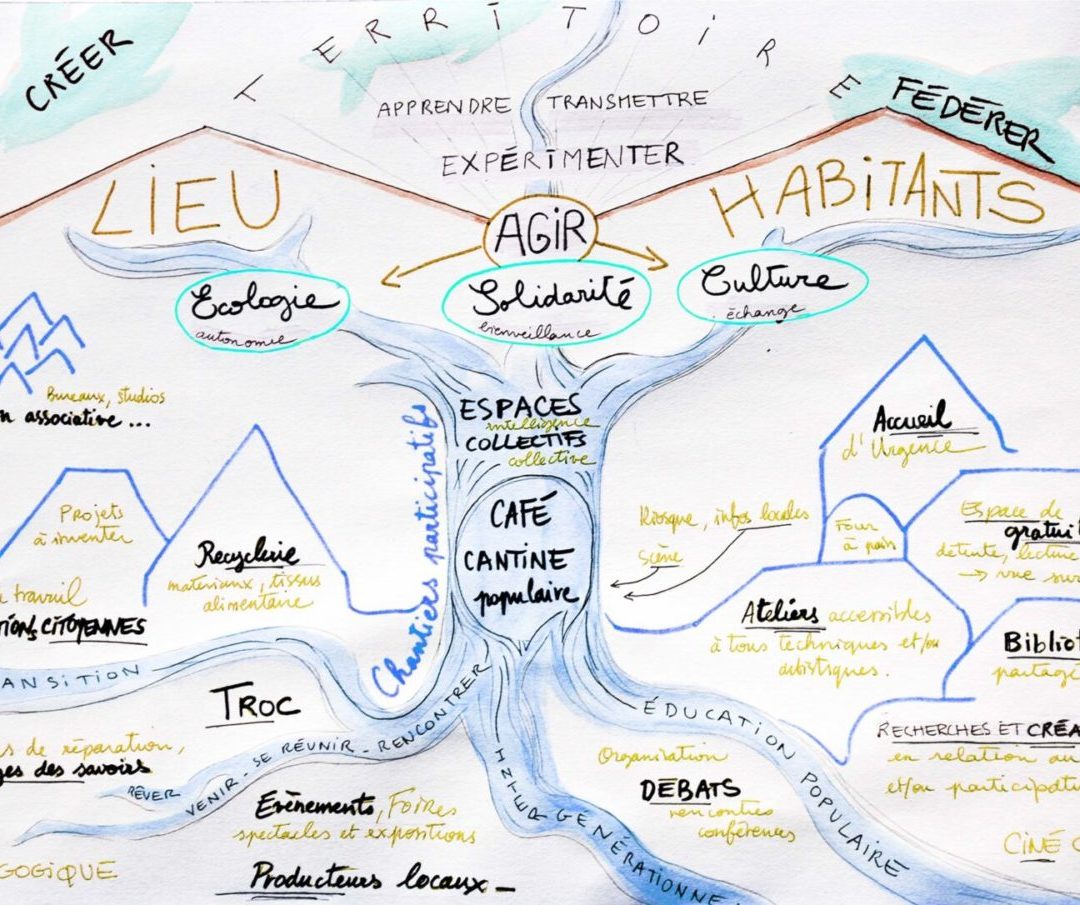 CRÉER
TERRITOIRE
FÉDÉRER
APPRENDRE TRANSMETTRE
EXPÉRIMENTER
LIEU
HABITANTS
AGIR
Ecologie
autonomie
Solidarité
bienveillance
Culture
échange
Bureaux, studios
n associative ...
Projets
à inventer
Recyclerie
materiaux, tissus
alimentaire
travail
TIONS CITOYENNES
Chantiers participatifs
ESPACES
intelligence
COLLECTIFS
collective
CAFÉ
CANTINE
populaire
Kiosque, infos locales
Scène
Accueil
d'Urgence
Four
à pain
Espace de
gratuit
détente, lecture
→ vue sur
Ateliers accessibles
à tous techniques et/ou
artistiques.
Bibliot
partage
ANSITION
TROC
s de réparation,
ges des savoirs
RÊVER VENIR - SE RÉUNIR - RENCONTRER
Evènements, Foires
spectacles et expositions
GOGIQUE
Producteurs locaux -
INTERGÉNÉRATIONNE
Organisation
DÉBATS
rencontres
conférences
ÉDUCATION POPULAIRE
RECHERCHES ET CRÉA
en relation au
et/ou participati
CINÉ C